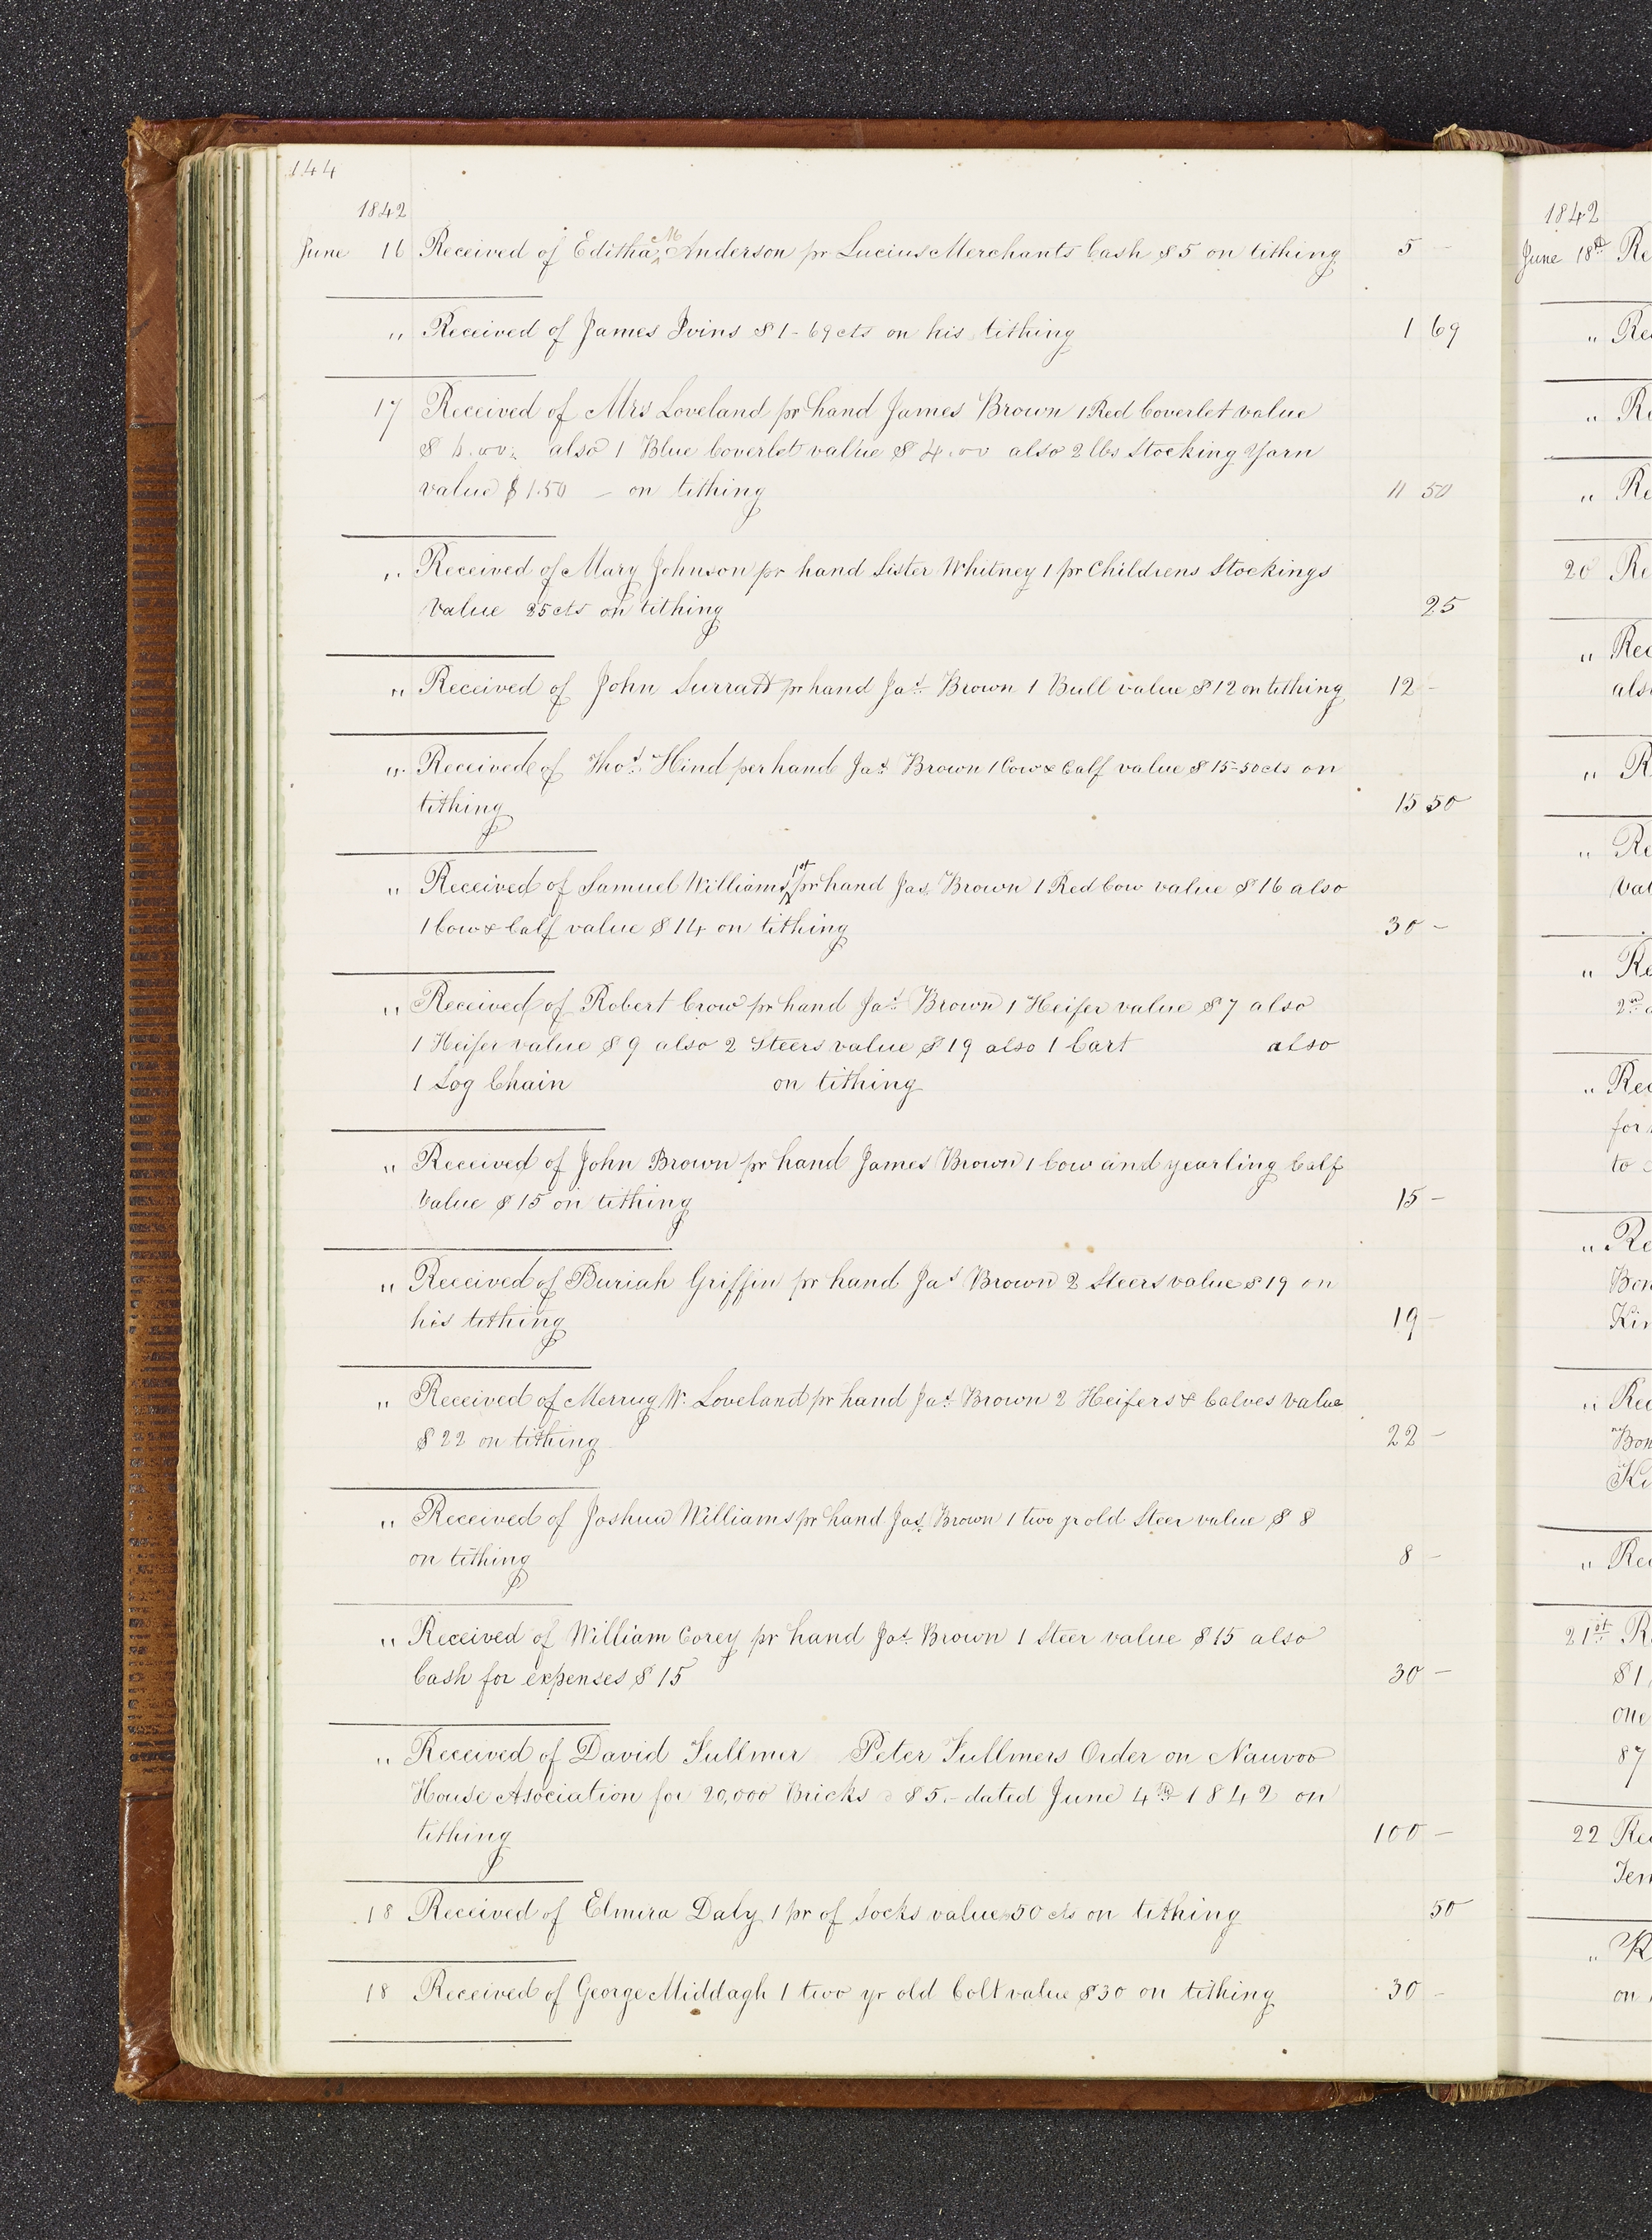 144
1842
June 16 Received of Editha M Anderson pr Lucius Merchants Cash $5 on tithing 5 –
" Received of James Ivins $1-69cts on his tithing 1 69
17 Received of Mrs Loveland pr hand James Brown 1 Red Coverlet value
$6.00; also 1 Blue Coverlet value $4.00 also 2 lbs Stocking Yarn
value $1.50 – on tithing 11 50
" Received of Mary Johnson pr hand Sister Whitney 1 pr Childrens Stockings
Value 25cts on tithing 25
" Received of John Surratt pr hand Jas. Brown 1 Bull value $12 on tithing 12 –
" Received of Thos. Hind per hand Jas. Brown 1 Cow & Calf value $15-50cts on
tithing 15 50
" Received of Samuel Williams 1st pr hand Jas. Brown 1 Red Cow value $16 also
1 Cow & Calf value $14 on tithing 30 –
" Received of Robert Crow pr hand Jas. Brown 1 Heifer value $7 also
1 Heifer value $9 also 2 Steers value $19 also 1 Cart also
1 Log Chain on tithing
" Received of John Brown pr hand James Brown 1 Cow and yearling Calf
Value $15 on tithing 15 –
" Received of Buriah Griffin pr hand Jas Brown 2 Steers value $19 on
his tithing 19 –
" Received of Merrug W. Loveland pr hand Jas. Brown 2 Heifers & Calves value
$22 on tithing 22 –
" Received of Joshua Williams pr hand Jas. Brown 1 two yr old Steer value $8
on tithing 8 –
" Received of William Corey pr hand Jas. Brown 1 Steer value $15 also
Cash for expenses $15 30 –
" Received of David Fullmer Peter Fullmers Order on Nauvoo
House Asociation for 20,000 Bricks $5.– dated June 4th 1842 on
tithing 100 –
18 Received of Elmira Daly 1 pr of Socks value 50 cts on tithing 50
18 Received of George Middagh 1 two yr old Colt value $30 on tithing 30 –
1842
June 18th Re
" Re
" Re
" Re
20 Re
" Rec
als
" R
" Re
Val
" Re
2nd
" Rec
for
to
" Re
Bon
Kin
" Rec
Bon
Ki
" Rec
21st R
$1
one
87
22 Rec
Tem
" R
on